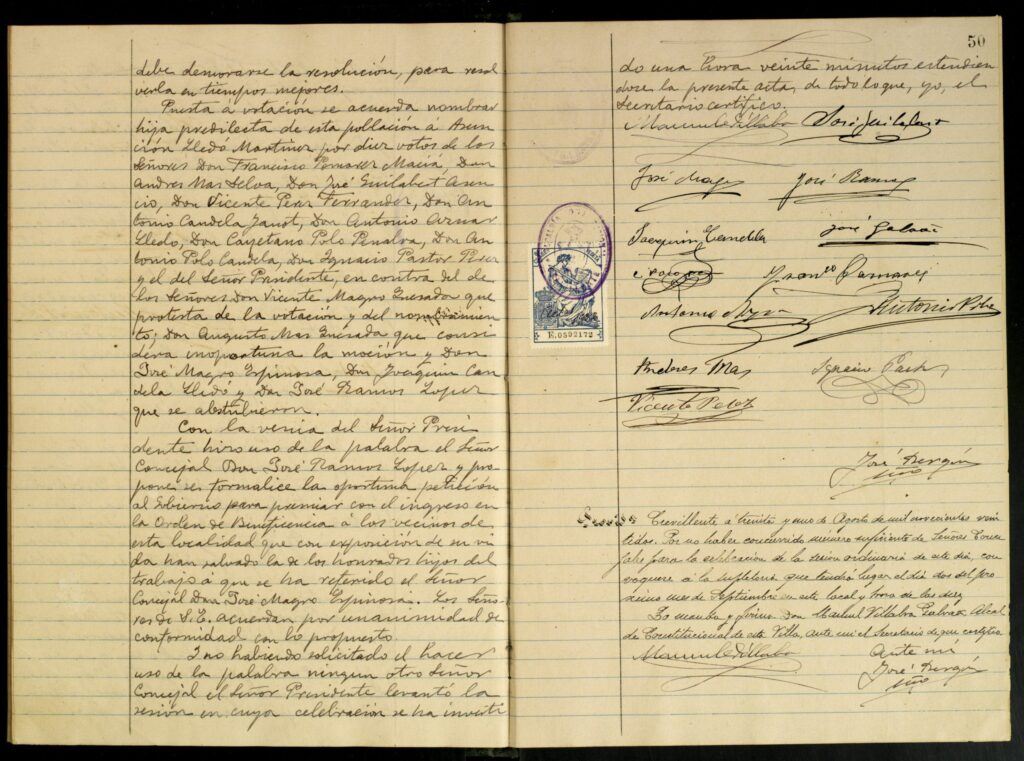 debe demorarse la resolución, para resol
verla en tiempos mejores.
Puesta a votación se acuerda nombrar
hija predilecta de esta población á Asun
ción Lledó Martinez por diez votos de los
Señores Don Francisco Pomares Maciá, Don
Andres Mas Selva, Don José Guilabert Asen
cio, Don Vicente Perez Ferrandez, Don An
tonio Candela Janst, Don Antonio Aznar
Lledo, Don Cayetano Polo Penalva, Don An
tonio Polo Candela, Don Ignacio Pastor Perez
y el del Señor Presidente, en contra del de
los Señores Don Vicente Magro Quesada que
protesta de la votación y del nombramien
to; Don Augusto Mas Quesada que consi
dera inoportuna la moción y Don
José Magro Espinosa, Don Joaquin Can
dela Lledó y Don José Ramos Lopez
que se abstubieron.
Con la venia del Señor Presi
dente hizo uso de la palabra el Señor
Concejal Don José Ramos Lopez y pro
pone se formalice la oportuna petición
al Gobierno para premiar con el ingreso en
la Orden de Beneficencia á los vecinos de
esta localidad que con exposición de su vi
da han salvado la de los honrados hijos del
trabajo á que se ha referido el Señor
Concejal Don José Magro Espinosa. Los Seño
res de S.E. acuerdan por unanimidad de
conformidad con lo propuesto.
Y no habiendo solicitado el hacer
uso de la palabra ningun otro Señor
Concejal el Señor Presidente levantó la
sesión en cuya celebración se ha inverti
50
do una hora veinte minutos extendien
dose la presente acta, de todo lo que, yo, el
Secretario certifico.
Manuel Villalba José Guilabert
José Magro José Ramos
Joaquin Candela José
Polo Franco Pomares
Antonio Aznar Antonio Polo
Andres Mas Ignacio Pastor
Vicente Perez
E.0502172
José
Crevillente á treinta y uno de Agosto de mil novecientos vein
tidos. Por no haber concurrido número suficiente de Señores Conce
jales para la celebración de la sesion ordinaria de este dia, con
voquese á la supletoria que tendrá lugar el dia dos del pro
ximo mes de Septiembre en este local y hora de las diez
Lo manda y firma Don Manuel Villalba Alcal
de Constitucional de esta Villa, ante mi el Secretario de que certifico
Manuel Villalba
Ante mi
José